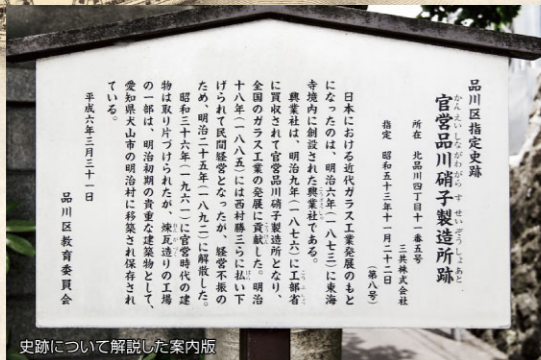 品川区指定史跡
官営品川硝子製造所跡
かんえいしながわがらすせいぞうしょあと
所在 北品川四丁目十一番五号
三共株式会社
指定 昭和五十三年十一月二十二日
(第八号)
日本における近代ガラス工業発展のもと
になったのは、明治六年(一八七三)に東海
寺境内に創設された興業社である。
興業社は、明治九年(一八七六)に工部省
に買収されて官営品川硝子製造所となり、
全国のガラス工業の発展に貢献した。明治
十八年(一八八五)には西村勝三らに払い下
げられて民間経営となったが、経営不振の
ため、明治二十五年(一八九二)に解散した。
昭和三十六年(一九六一)に官営時代の建
物は取り片づけられたが、煉瓦造りの工場
の一部は、明治初期の貴重な建築物として、
愛知県犬山市の明治村に移築され保存され
ている。
平成六年三月三十一日
品川区教育委員会
史跡について解説した案内版